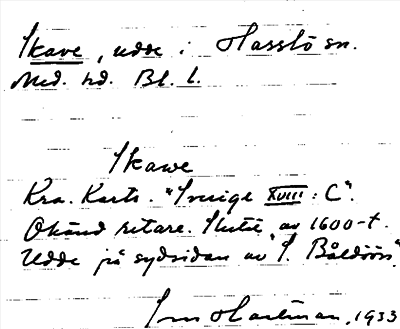 Skave, udde i Hasslö sn.
Med. hd. Bl. l.
Skawe
Kra. Kartv. "Sverige XVIII: C".
Okänd ritare. Slutet av 1600-t.
Udde på sydsidan av "S. Båldöös".
Hartman, 1933